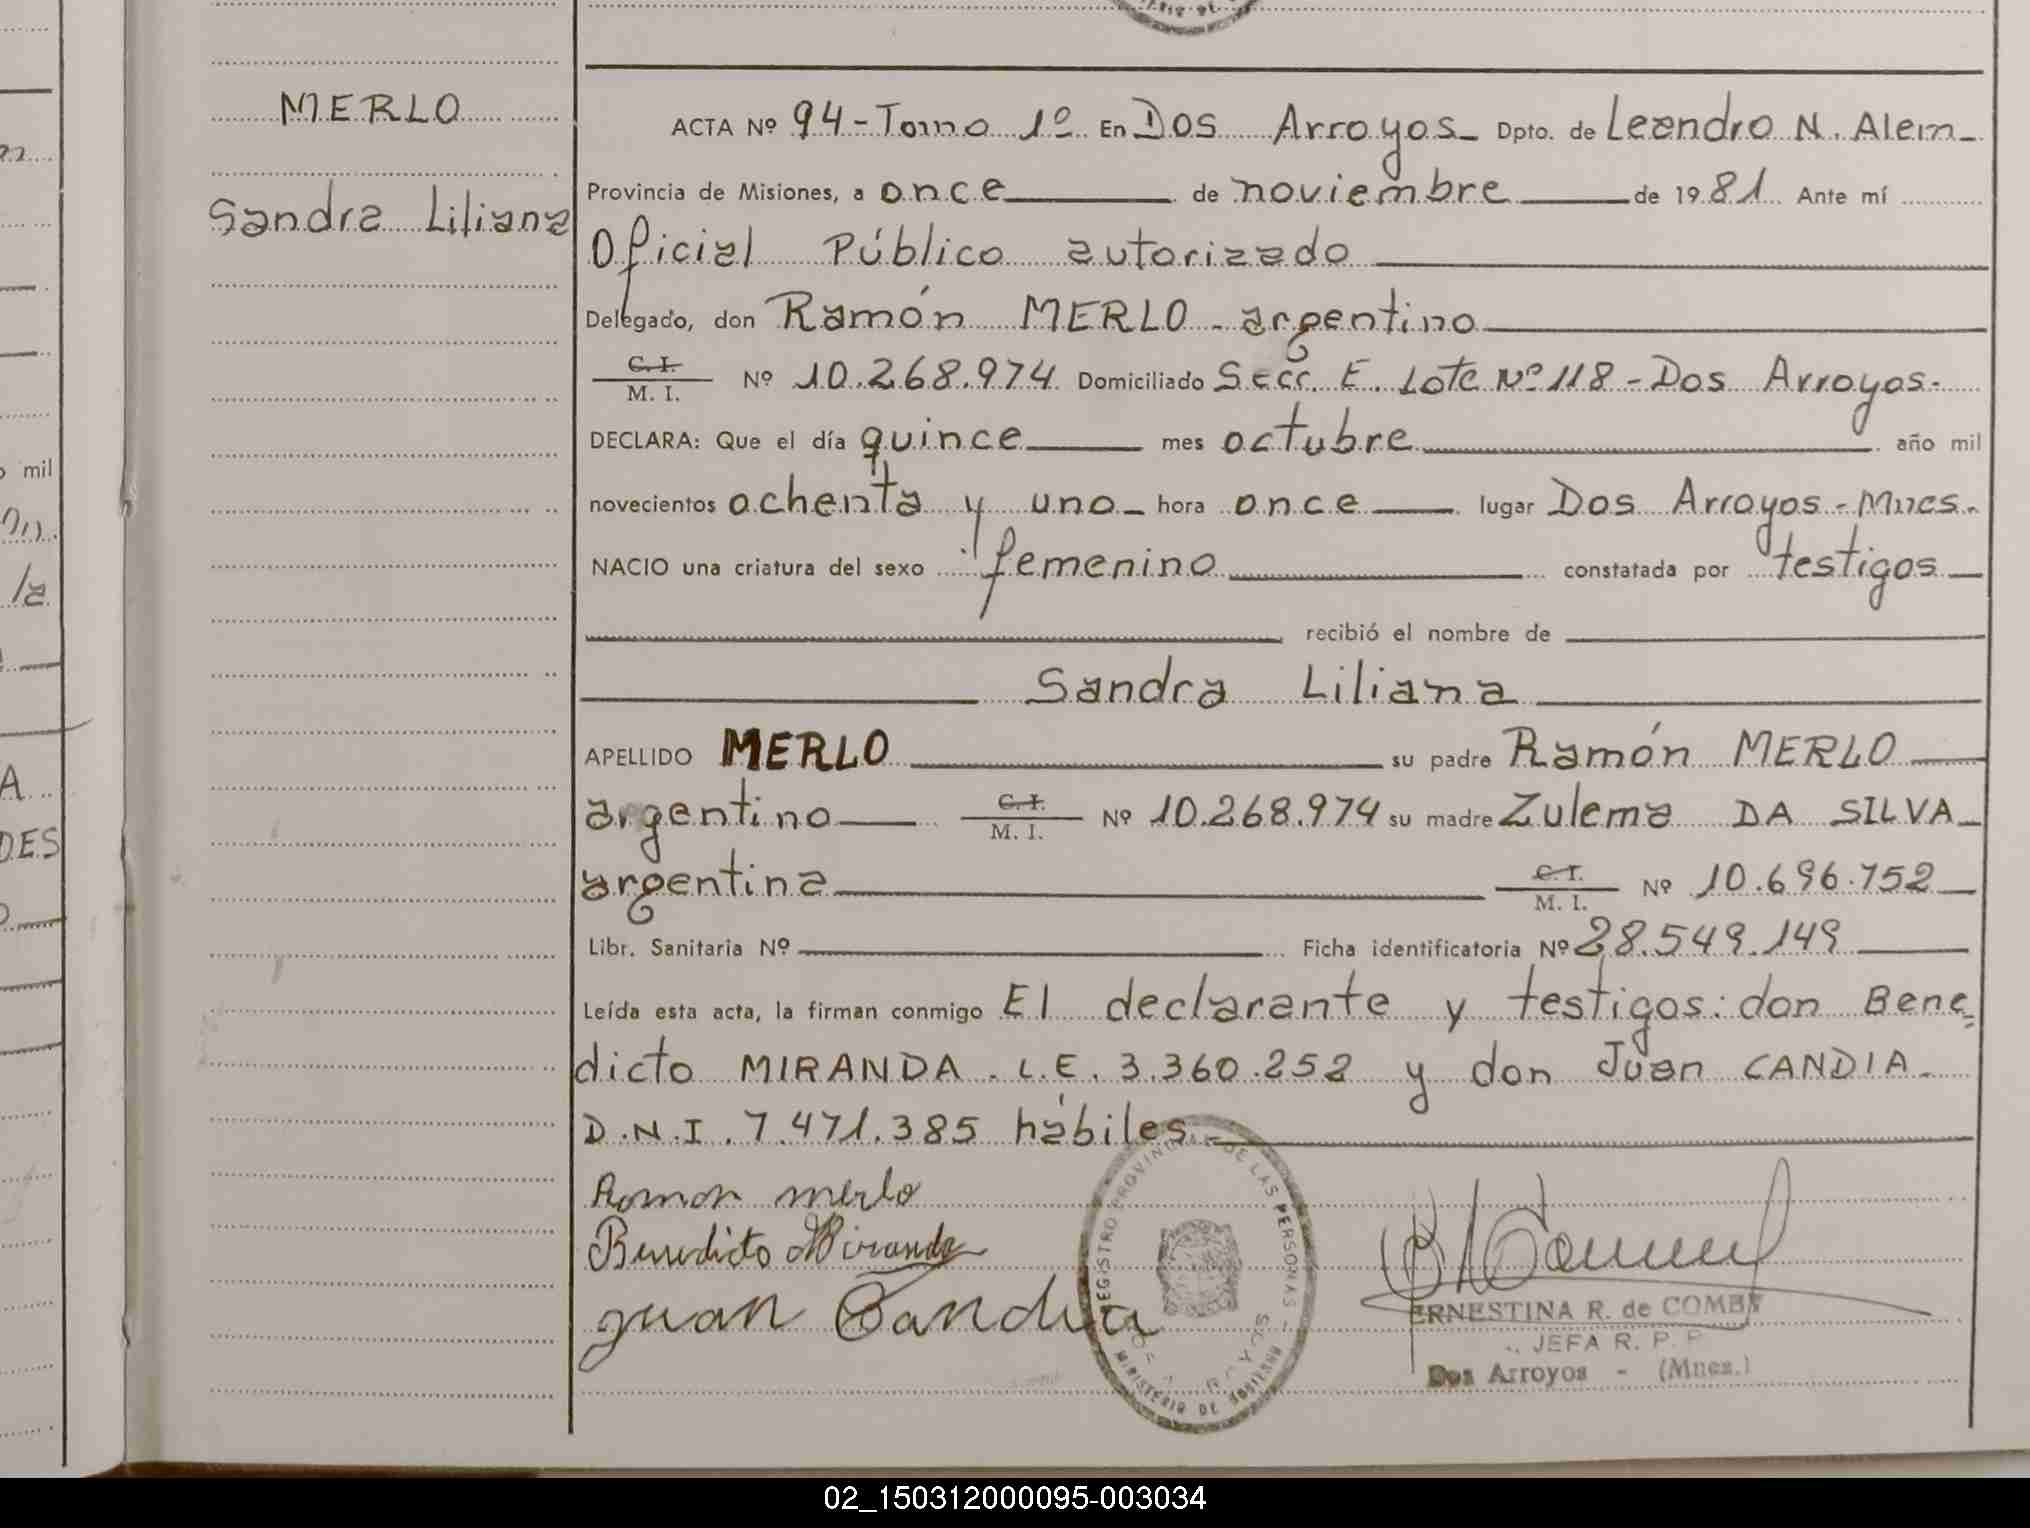 MERLO
Sandra Liliana
ACTA Nº 94 - Tomo 1º En Dos Arroyos - Dpto. de Leandro N. Alem -
Provincia de Misiones, a once de noviembre de 1981 Ante mí
Oficial Público autorizado
Delegado, don Ramón MERLO - argentino
C. I.
M. I. Nº 10.268.974 Domiciliado Secc. E. Lote Nº 118 - Dos Arroyos -
DECLARA: Que el día quince mes octubre año mil
novecientos ochenta y uno - hora once lugar Dos Arroyos - Mnes.
NACIO una criatura del sexo femenino constatada por testigos
recibió el nombre de
Sandra Liliana
APELLIDO MERLO su padre Ramón MERLO
argentino C. I.
M. I. Nº 10.268.974 su madre Zulema DA SILVA
argentina C. I.
M. I. Nº 10.696.752
Libr. Sanitaria Nº Ficha identificatoria Nº 28.549.149
Leída esta acta, la firman conmigo El declarante y testigos: don Bene=
dicto MIRANDA . L.E. 3.360.252 y don Juan CANDIA -
D.N.I. 7.471.385 hábiles
Ramon merlo
Benedicto Miranda
juan Candia
REGISTRO PROVINCIAL DE LAS PERSONAS
MINISTERIO DE GOBIERNO
ERNESTINA R. de COMBY
JEFA R. P. P.
Dos Arroyos - (Mnes.)
o mil
la
A
DES
02_150312000095-003034